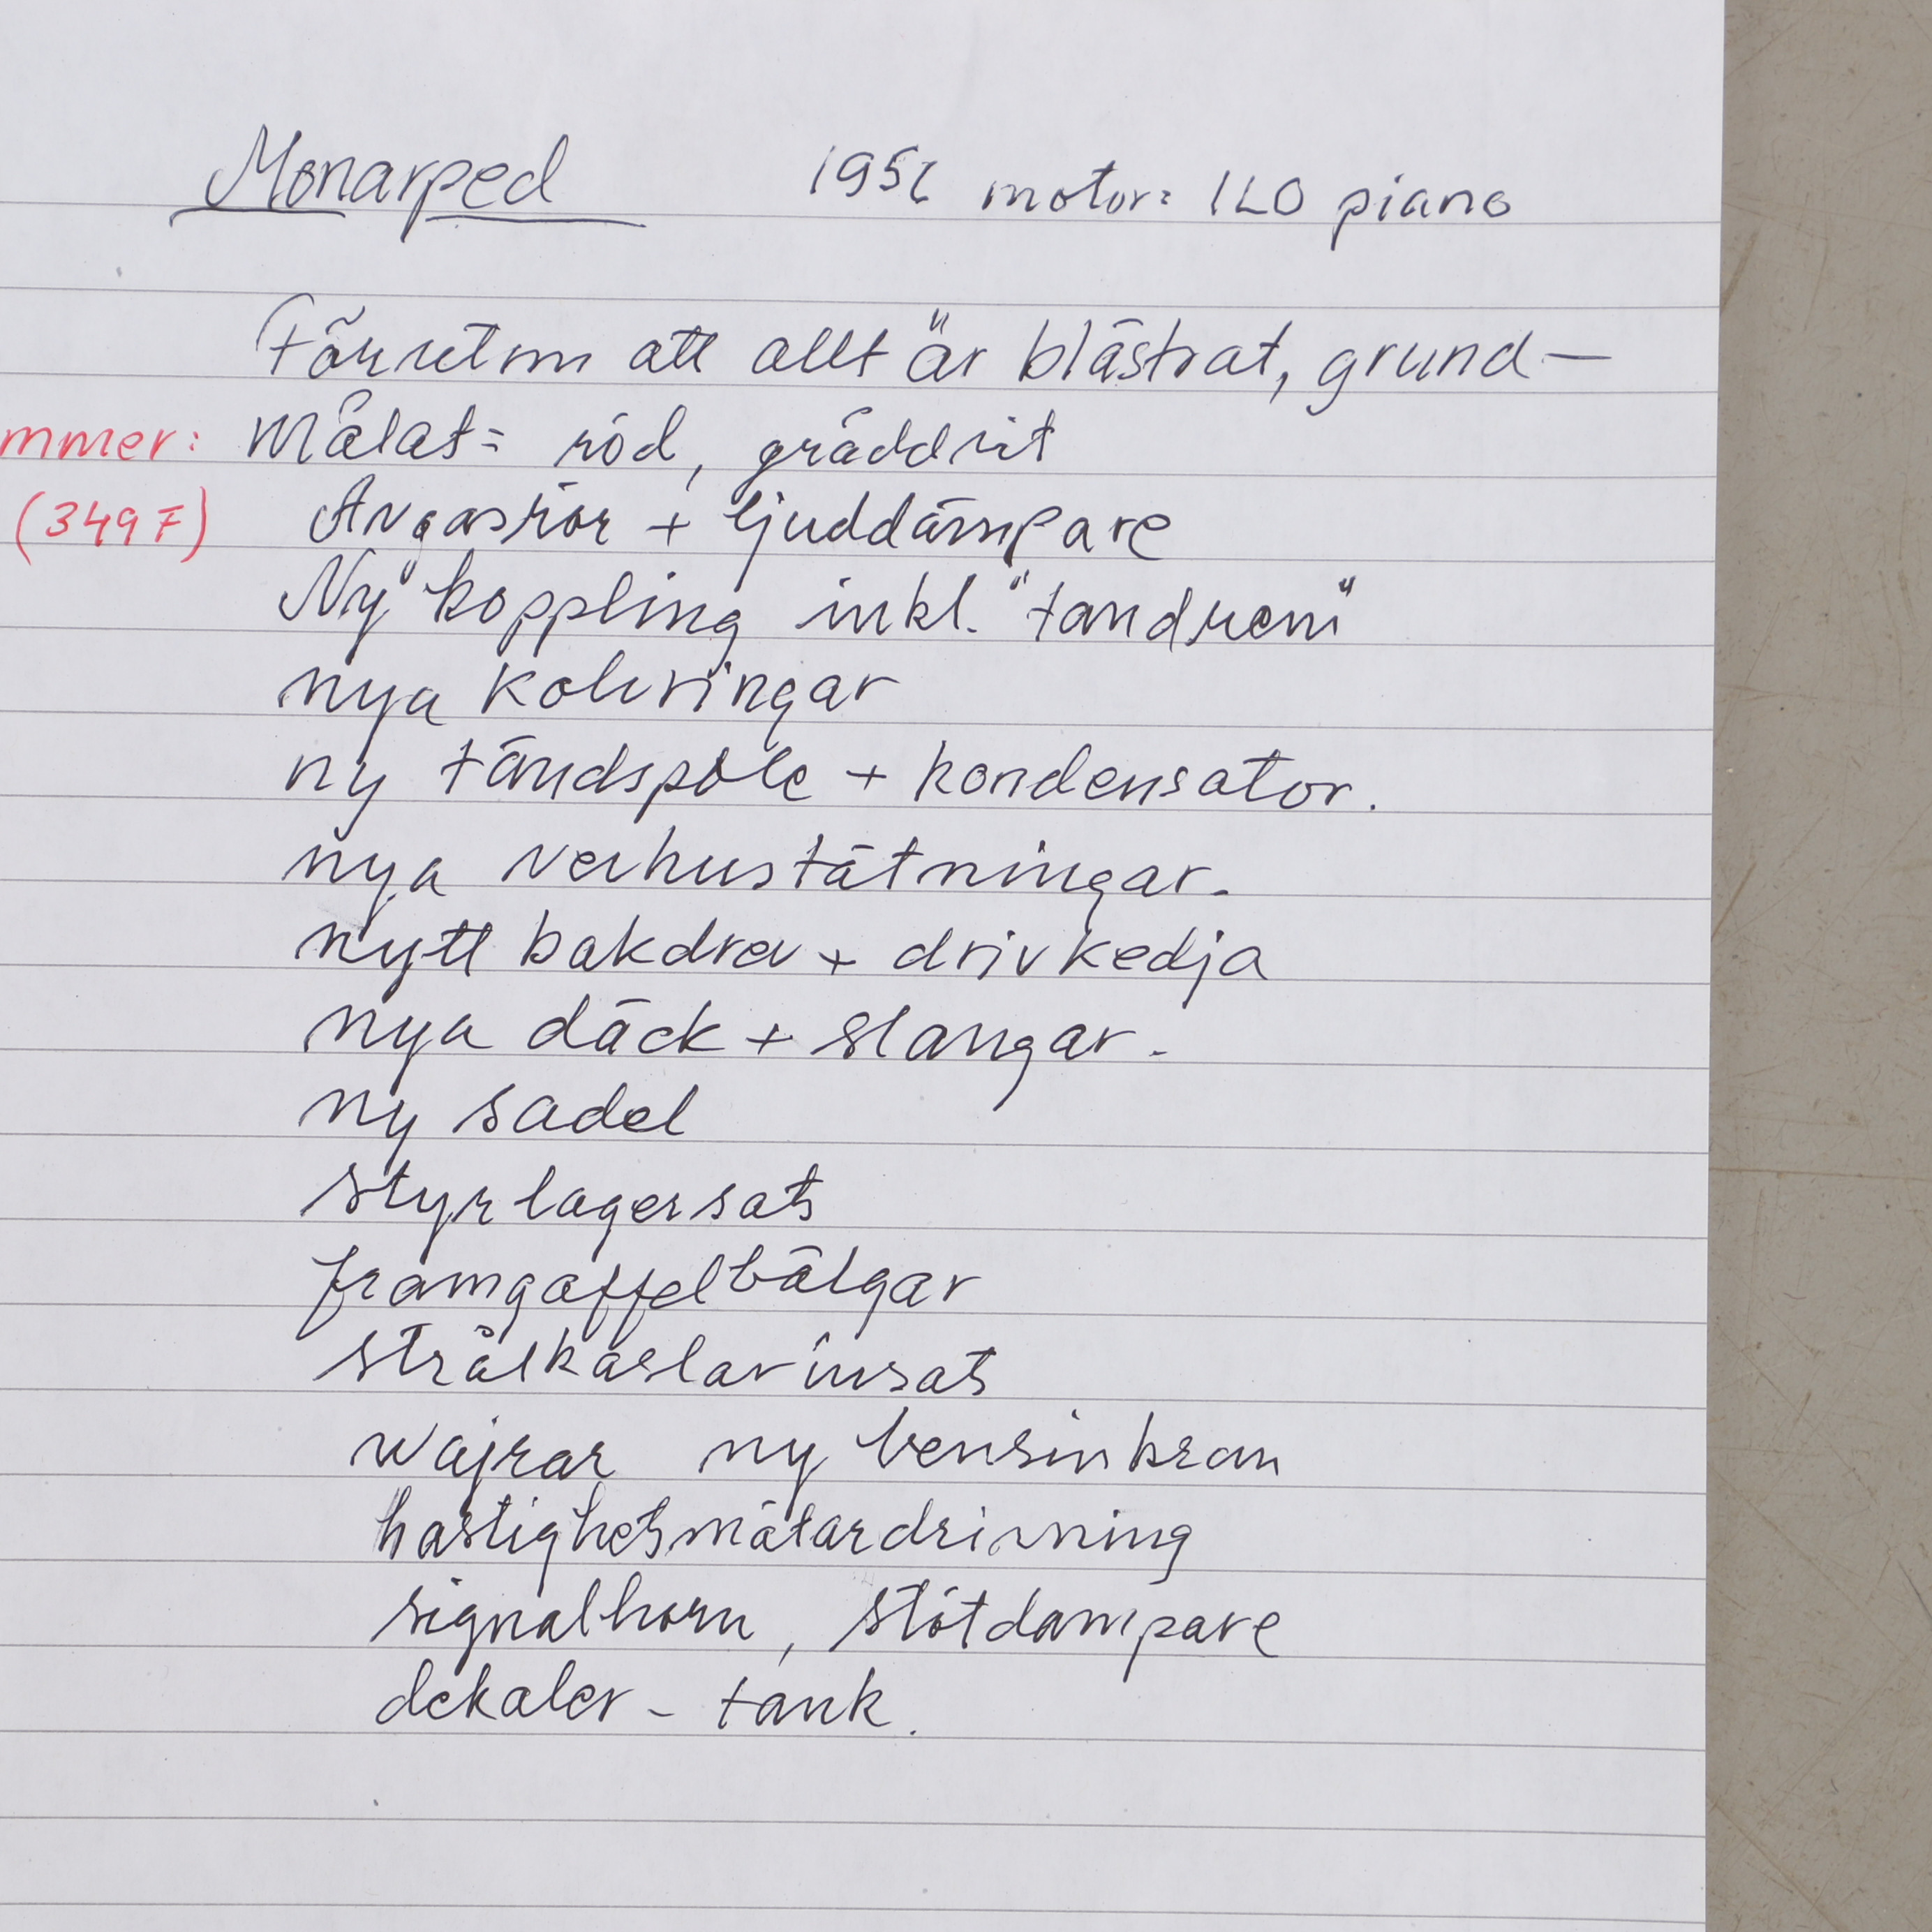 Monarped 1956 motor: ILO piano
Förutom att allt är blästrat, grund-
mmer: målat= röd, gräddvit
(349F) Avgasrör + ljuddämpare
Ny koppling inkl. "tandrem"
nya kolvringar
ny tändspole + kondensator.
nya vevhustätningar.
nytt bakdrev + drivkedja
nya däck + slangar.
ny sadel
styrlagersats
framgaffelbälgar
strålkastarinsats
wajrar ny bensinkran
hastighetsmätardrivning
signalhorn, stötdämpare
dekaler - tank.